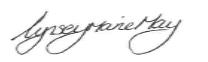 Lynsey Marie May